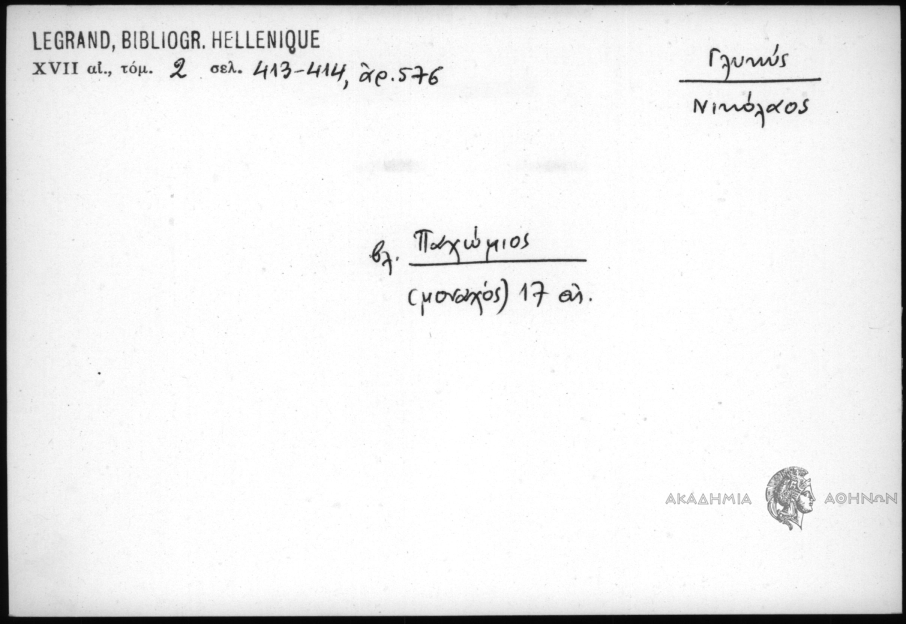 LEGRAND, BIBLIOGR. HELLENIQUE
XVII αἰ., τόμ. 2 σελ. 413-414, ἀρ. 576
Γλυκύς
Νικόλαος
βλ. Παχώμιος
(μοναχός) 17 αἰ.
ΑΚΑΔΗΜΙΑ ΑΘΗΝΩΝ